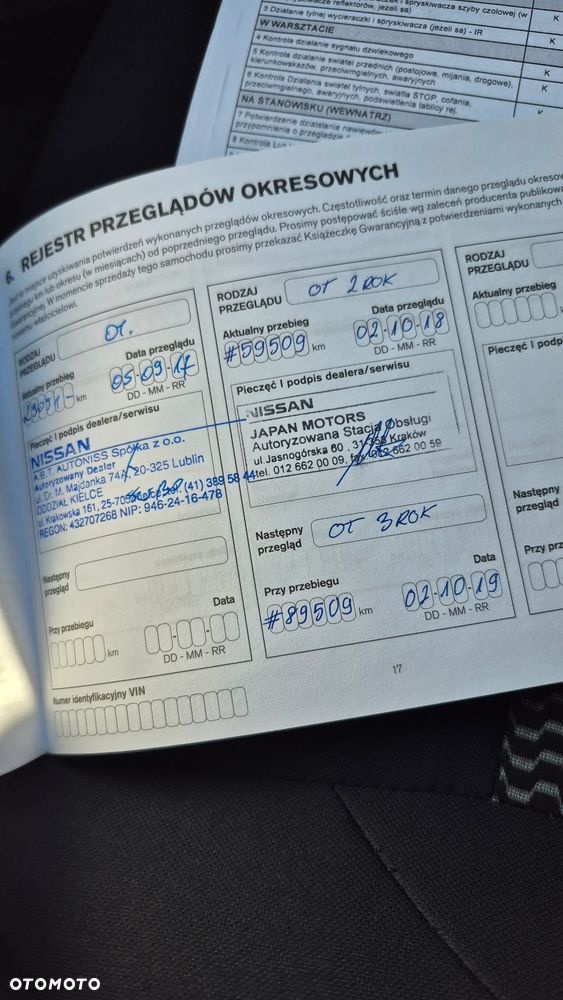 szyby czołowej (w
reflektorów, jeżeli są)
3 Działanie tylnej wycieraczki i spryskiwacza (jeżeli są) - IR
K
W WARSZTACIE
4 Kontrola działanie sygnału dźwiękowego
K
5 Kontrola działanie świateł przednich (postojowe, mijania, drogowe),
kierunkowskazów, przeciwmgielnych, awaryjnych
K
6 Kontrola Działania świateł tylnych, światła STOP, cofania,
przeciwmgielnego, awaryjnych, podświetlenia tablicy rej.
K
NA STANOWISKU (WEWNĄTRZ)
7 Potwierdzenie działalania
przypomnienia o przeglądzie
8 Kontrola
6. REJESTR PRZEGLĄDÓW OKRESOWYCH
Jest to miejsce uzyskiwania potwierdzeń wykonanych przeglądów okresowych. Częstotliwość oraz termin danego przeglądu
przebiegu km lub okresu (w miesiącach) od poprzedniego przeglądu. Prosimy postępować ściśle wg zaleceń producenta
Gwarancyjnej. W momencie sprzedaży tego samochodu prosimy przekazać Książeczkę Gwarancyjną z potwierdzeniami wykonanych
nowemu właścicielowi.
RODZAJ
PRZEGLĄDU
OT.
Aktualny przebieg
Data przeglądu
km
05-09-17
DD - MM - RR
Pieczęć I podpis dealera/serwisu
NISSAN
A.B.T. AUTONISS Spółka z o.o.
Autoryzowany Dealer
ul. Dr. M. Majdanka 74A, 20-325 Lublin
ODDZIAŁ KIELCE
ul. Krakowska 161, 25-705 (41) 389 58 44
REGON: 432707268 NIP: 946-24-16-478
Następny
przegląd
Przy przebiegu
Data
km
DD - MM - RR
Numer identyfikacyjny VIN
RODZAJ
PRZEGLĄDU
OT 2 ROK
Aktualny przebieg
Data przeglądu
#59509 km
02-10-18
DD - MM - RR
Pieczęć I podpis dealera/serwisu
NISSAN
JAPAN MOTORS
Autoryzowana Stacja Obsługi
ul.Jasnogórska 60 Kraków
tel. 012 662 00 09, fax 012 662 00 59
Następny
przegląd
OT 3 ROK
Przy przebiegu
Data
#89509 km
02-10-19
DD - MM - RR
RODZAJ
PRZEGLĄDU
Aktualny przebieg
Pieczęć I
Następny
przegląd
17
OTOMOTO